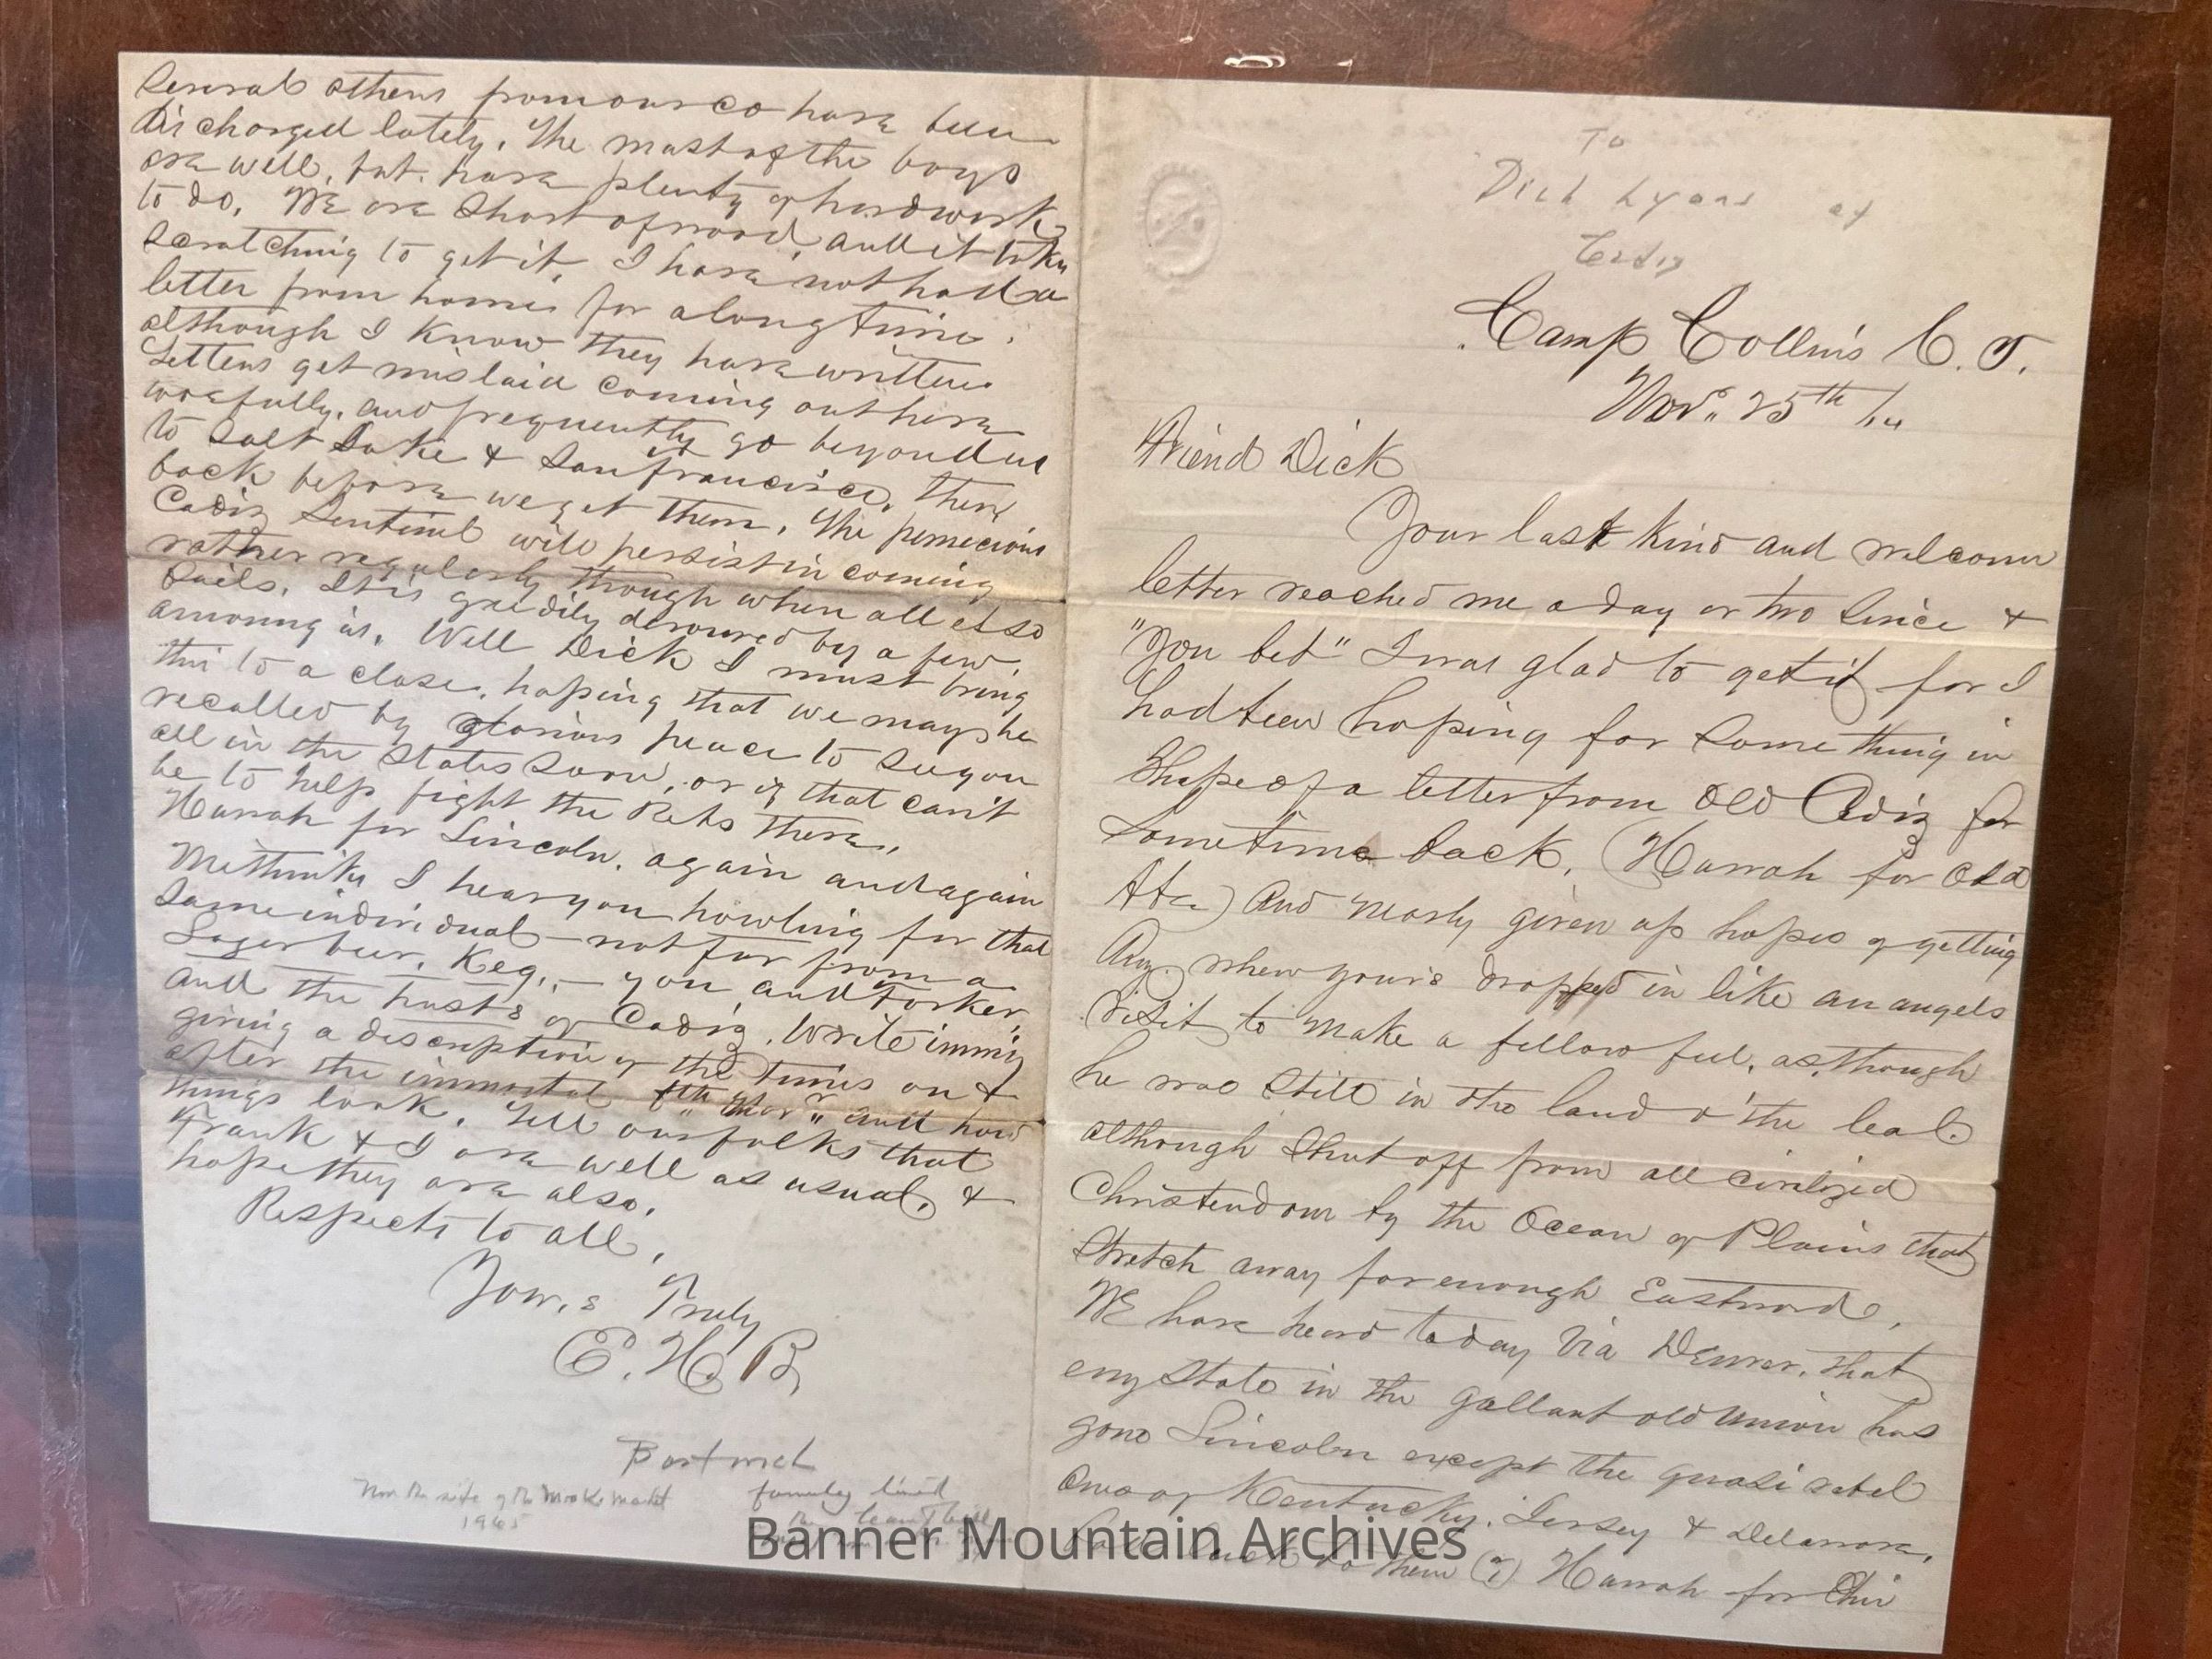 To
Dick Lyons of
Cadiz
Camp Collins C. T.
Nov. 25th 64
Friend Dick
Your last kind and welcome
letter reached me a day or two since &
"You bet" I was glad to get it for I
had been hoping for some thing in
shape of a letter from Old Cadiz for
sometime back, (Hurrah for Old
Abe) And nearly given up hopes of getting
Any. when your's dropped in like an angels
visit to make a fellow feel, as, though
he was still in the land o' the leal.
although shut off from all civilized
Christendom by the Ocean of Plains that
stretch away far enough Eastward,
We have heard today via Denver, that
evry State in the gallant old Union has
gone Lincoln except the quasi rebel
ones of Kentucky, Jersey & Delaware,
luck to them (?) Hurrah for Ohio
Several others from our co have been
discharged lately. The most of the boys
are well, but have plenty of hard work
to do, We are short of wood, and it takes
scratching to get it, I have not had a
letter from home for a long time,
although I know they have written.
Letters get mislaid coming out here
woefully, and frequently go beyond us
to Salt Lake & San francisco, then
back before we get them, The pernecious
Cadiz Sentinel will persist in coming
rather regularly though when all else
fails. It is greedily devoured by a few
among us. Well Dick I must bring
this to a close, hoping that we may be
recalled by glorious peace to see you
all in the States soon, or if that can't
be to help fight the Rebs there,
Hurrah for Lincoln. again and again
Methinks I hear you howling for that
same individual - not far from a
Lager beer, Keg, - you and Forker,
and the hosts of Cadiz. Write immy
giving a discription of the times on &
after the immortal 8th "Nov" and how
things look. Tell our folks that
Frank & I are well as usual, &
hope they are also,
Respects to all,
Yours Truly
E. H. B
Bostwick
Now the site of the market family lived
1965
Banner Mountain Archives